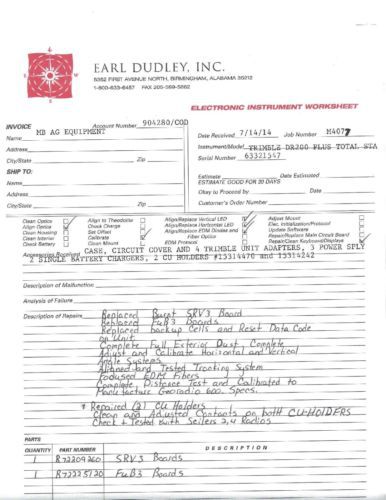 EARL DUDLEY, INC.
5352 FIRST AVENUE NORTH, BIRMINGHAM, ALABAMA 35212
1-800-633-6487 FAX 205-599-5862
ELECTRONIC INSTRUMENT WORKSHEET
INVOICE Account Number 904280/COD
Name MB AG EQUIPMENT
Date Received 7/14/14 Job Number M4077
Address
Instrument/Model TRIMBLE DR200 PLUS TOTAL STA
City/State Zip
Serial Number 63321547
SHIP TO:
Name
Estimate Date Estimated
ESTIMATE GOOD FOR 20 DAYS
Address
Okay to Proceed by Date
City/State Zip
Customer's Order Number
Clean Optics Align to Theodolite Align/Replace Vertical LED Adjust Mount
Align Optics Check Charge Align/Replace Horizontal LED Elec. Initialization/Protocol
Clean Housing Set Offset Align/Replace EDM Diodes and Update Software
Clean Interior Calibrate Fiber Optics Repair/Replace Main Circuit Board
Check Battery Clean Mount EDM Protocol Repair/Clean Keyboard/Displays
Accessories Received CASE, CIRCUIT COVER AND 4 TRIMBLE UNIT ADAPTERS, 3 POWER SPLY
2 SINGLE BATTERY CHARGERS, 2 CU HOLDERS #13314470 AND 13314242
Description of Malfunction
Analysis of Failure
Description of Repairs Replaced Burnt SRV3 Board
Replaced FuB3 Boards
Replaced backup Cells and Reset Data Code
on Unit.
Complete Full Exterior Dust, Complete
Adjust and Calibrate Horizontal and Vertical
Angle Systems
Aligned and Tested Tracking System
Focused EDM Fibers
Complete Distance Test and Calibrated to
Manufacture Georadio 600. Specs.
* Repaired (2) CU Holders
Clean and Adjusted Contacts on both CU-HOLDERS
Check + Tested with Seilers 2,4 Radios
PARTS
QUANTITY PART NUMBER DESCRIPTION
1 R72209260 SRV3 Boards
1 R72225120 FuB3 Boards